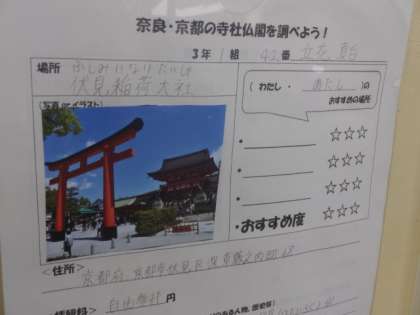 奈良・京都の寺社仏閣を調べよう!
3年 1組 42番
場所
ふしみいなりたいしゃ
伏見稲荷大社
(写真 or イラスト)
(わたし・あたし)の
おすすめの場所
・ ☆☆☆
・ ☆☆☆
・ ☆☆☆
・おすすめ度 ☆☆☆
<住所>
京都府 京都市伏見区深草藪之内町68
自由参拝 円